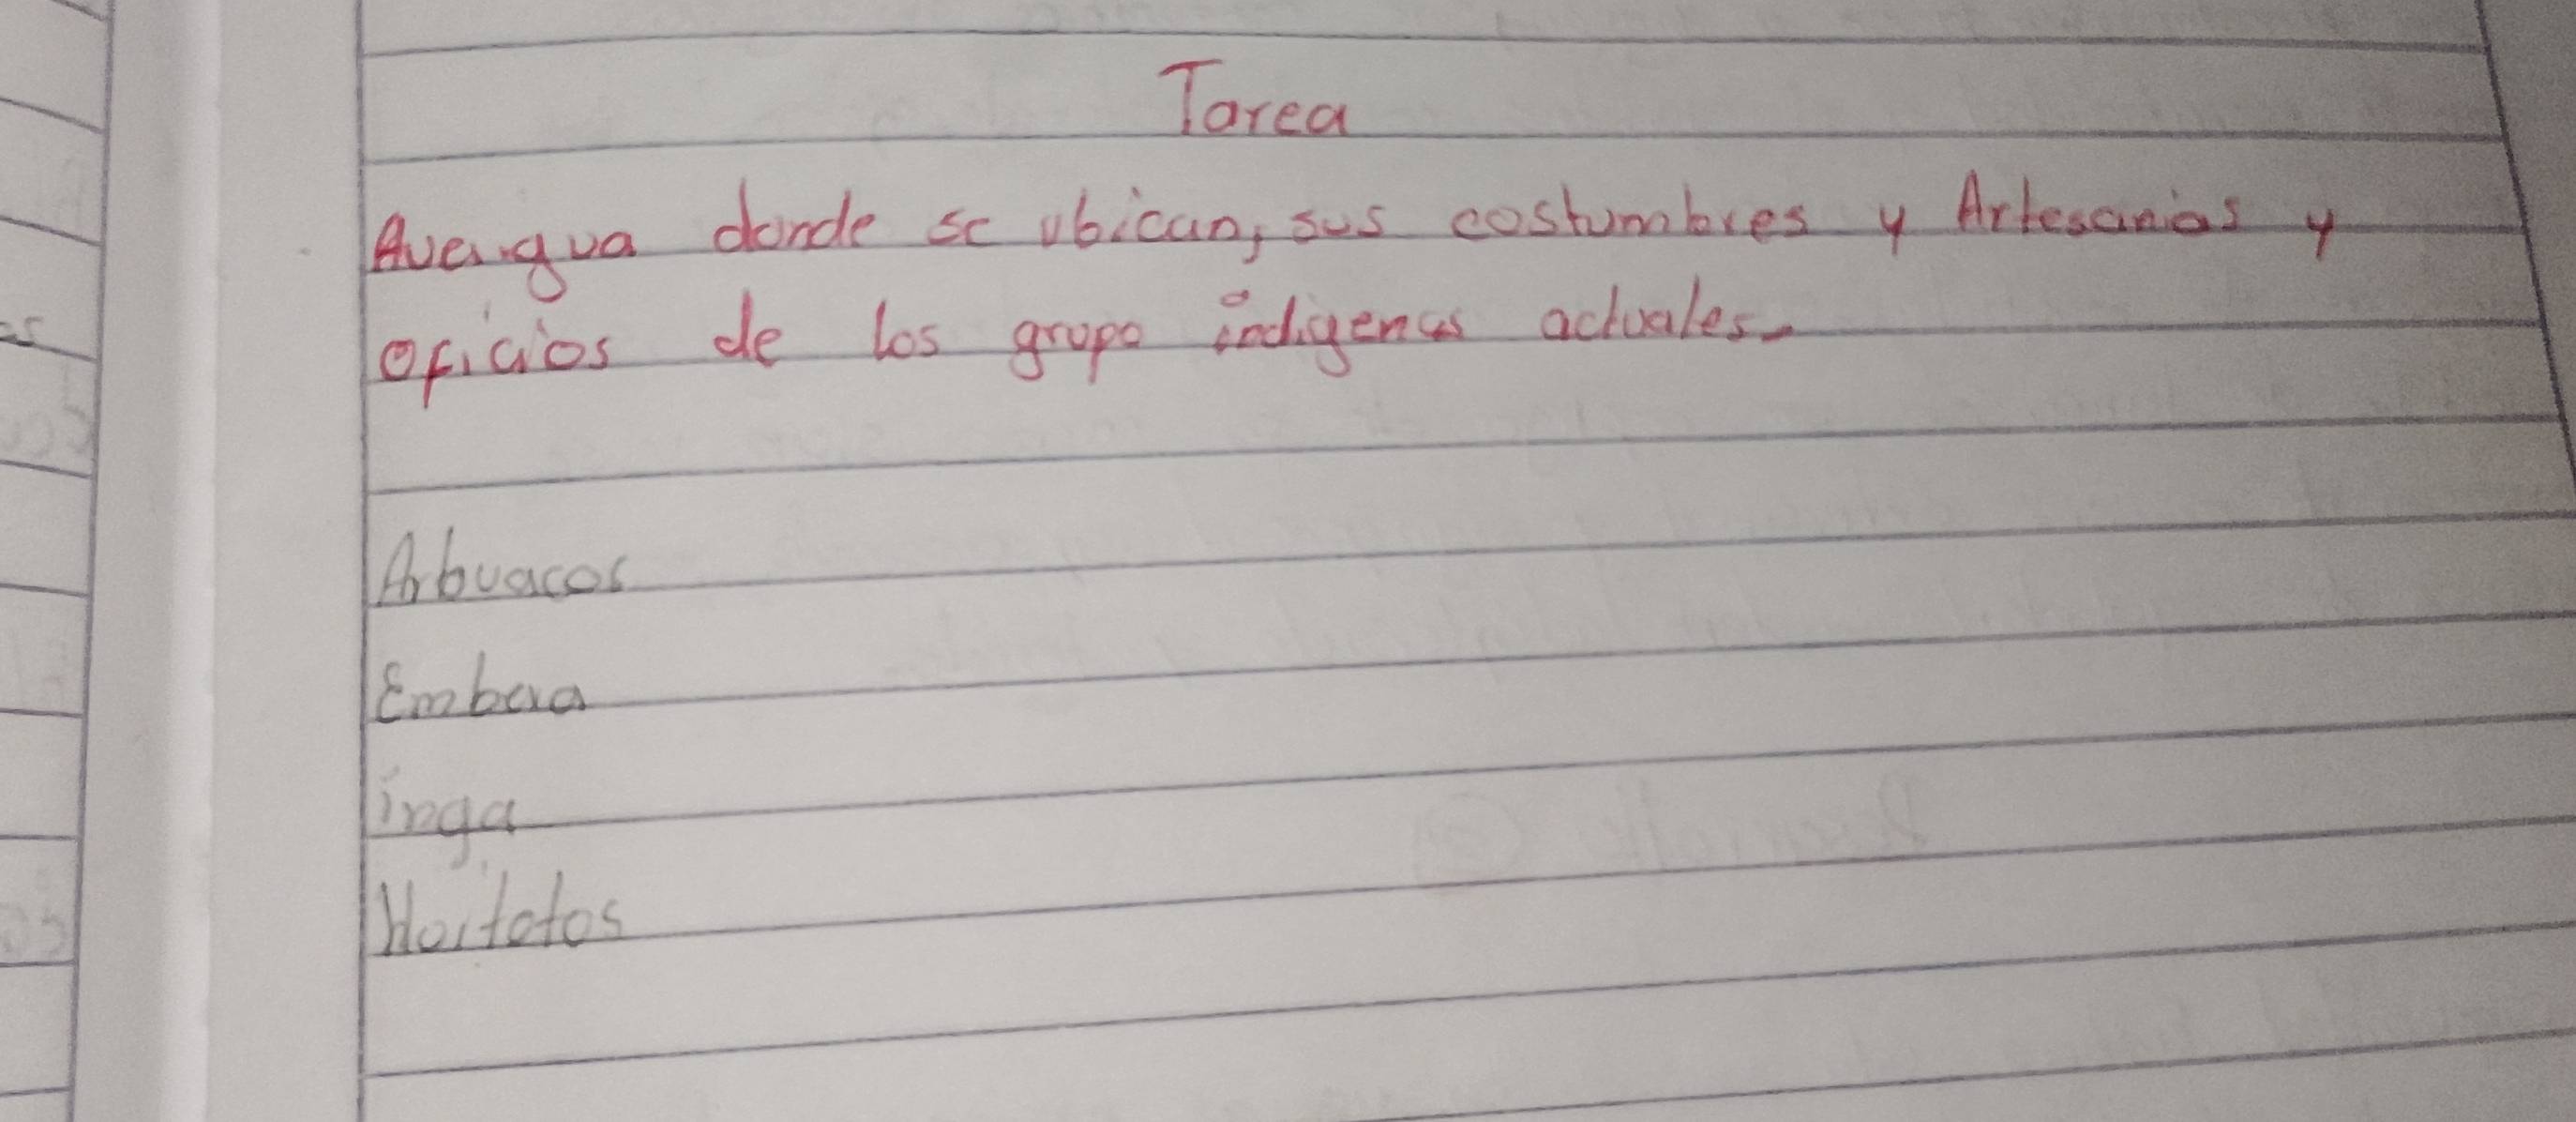 Tarea
Averigua donde se ubican, sus costumbres y Artesanias y
oficios de los grupo indigenas actuales.
Arbuacos
Embera
inga
Hoitotos